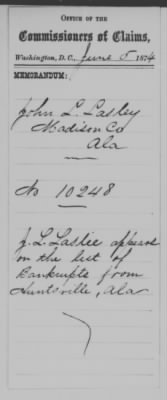 OFFICE OF THE
Commissioners of Claims,
Washington, D. C., June 5 1874
MEMORANDUM:
John L. Lasley
Madison Co
Ala
No 10248
J. L. Laslie appears
on the list of
Bankrupts from
Huntsville, Ala